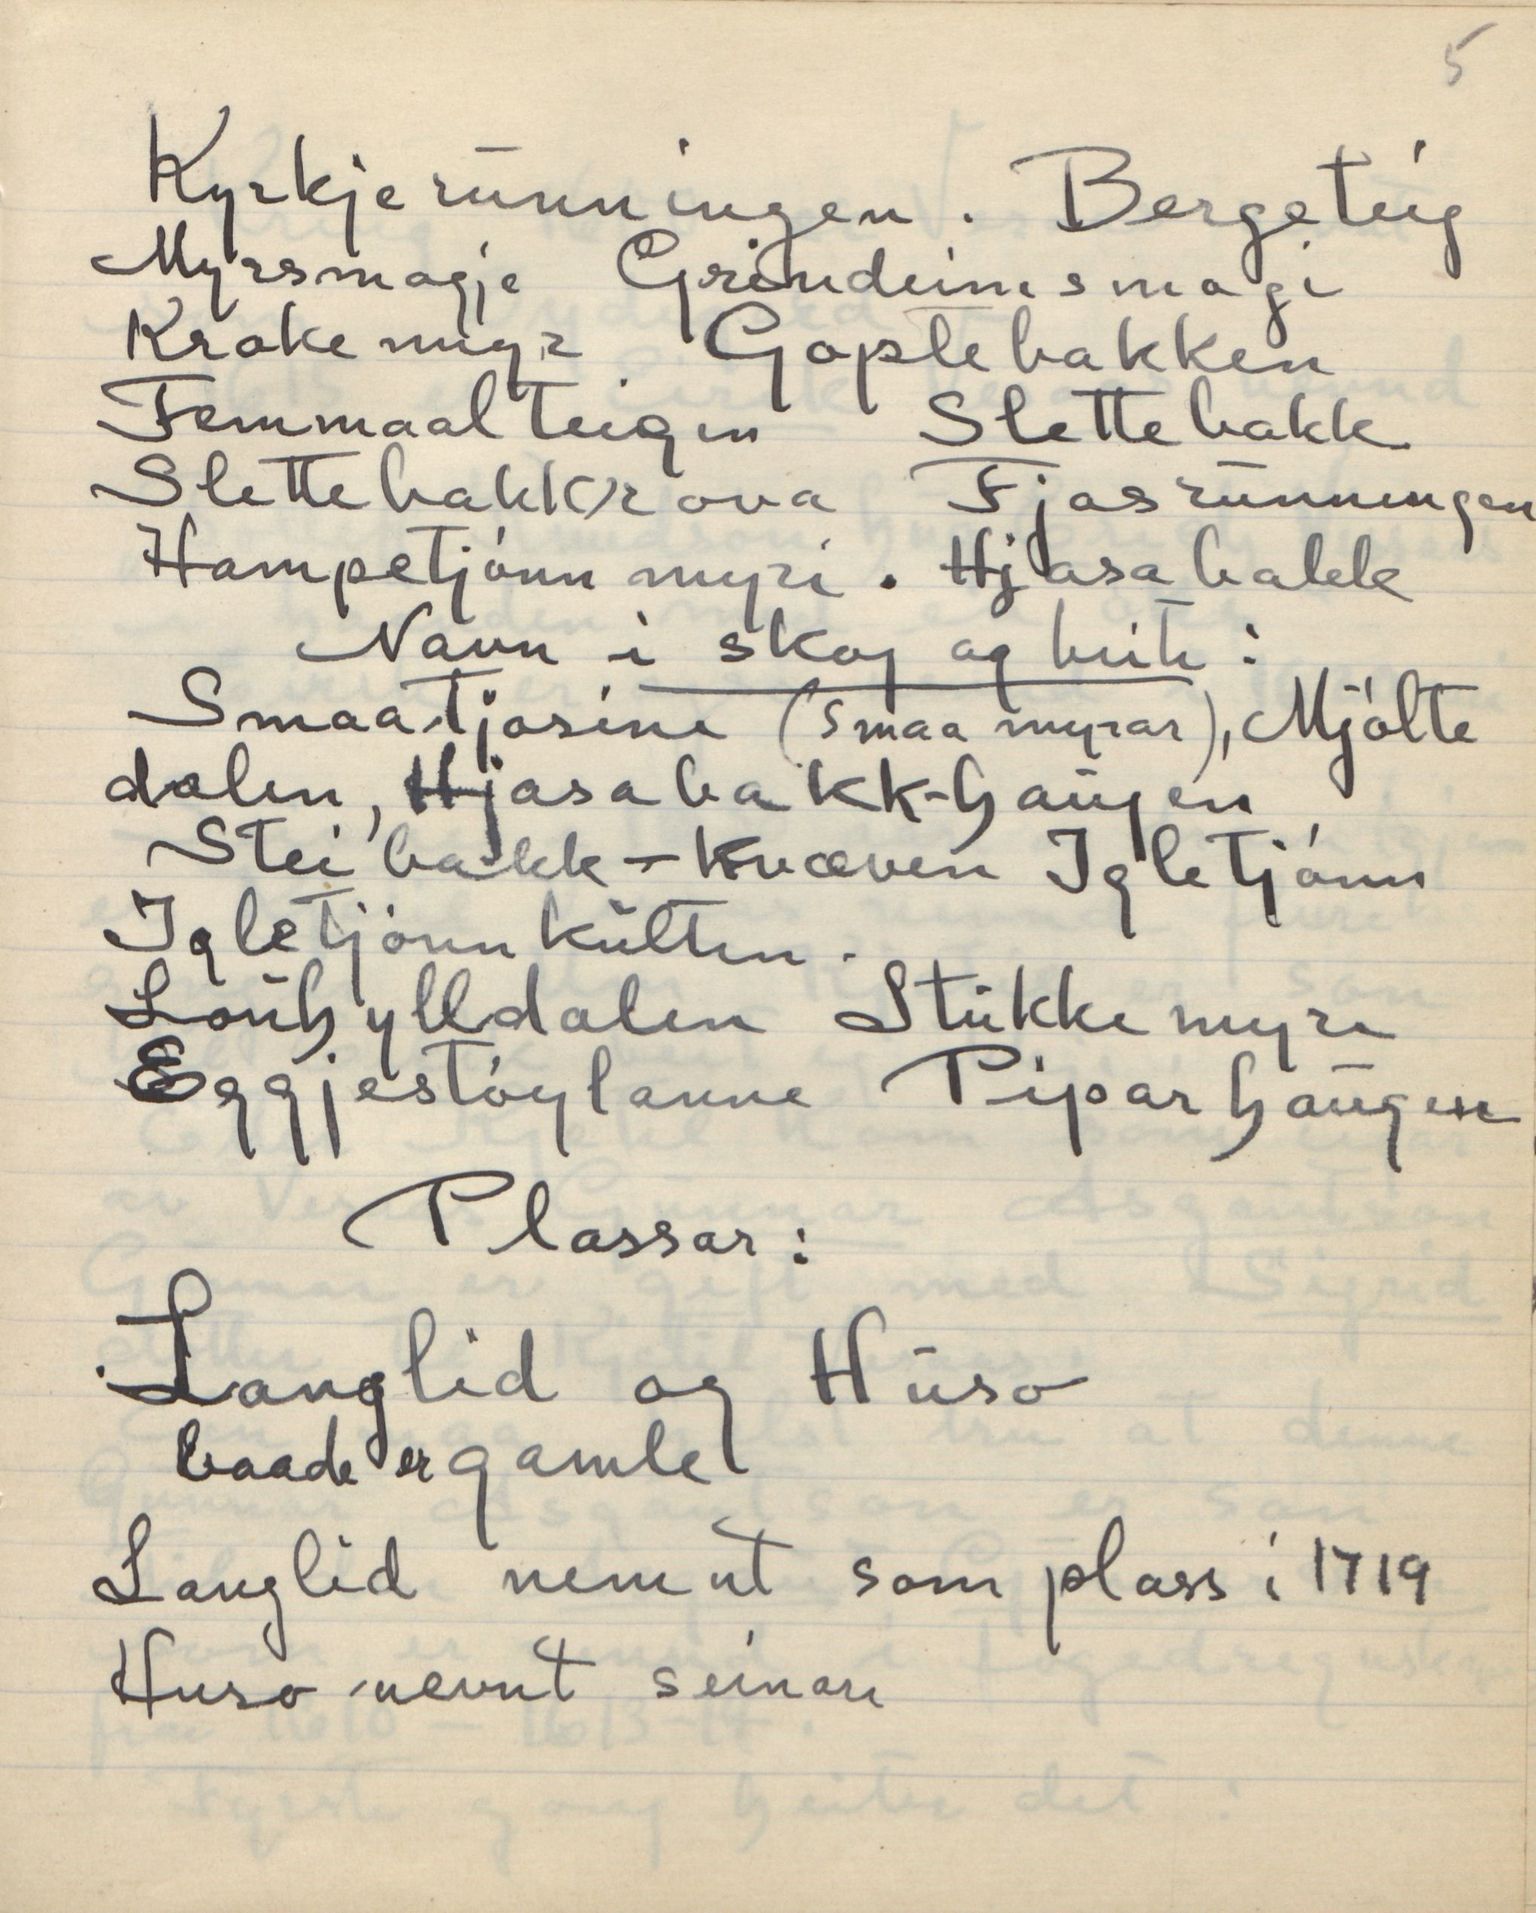 5
Kyrkjerunningen. Bergeteig
Myrsmogje Grindeimsmogi
Krokemyr Goptebakken
Femmaalteigen Slettebakk
Slettebakkrova Fjosrunningen
Hampetjónnmyri. Hjasabakk
Navn i skog og beite:
Smaatjosine (Smaa myrar), Mjølte
dalen, Hjasabakk-haugen
Steibakk-Kvæven Igletjónn
Igletjónnkulten.
Lauhylldalen Stukkemyre
Eggjestøylanne Piparhaugen
Plassar:
Langlid og Huso
baade er gamle
Langlid nemnt som plass i 1719
Huso nevnt seinare